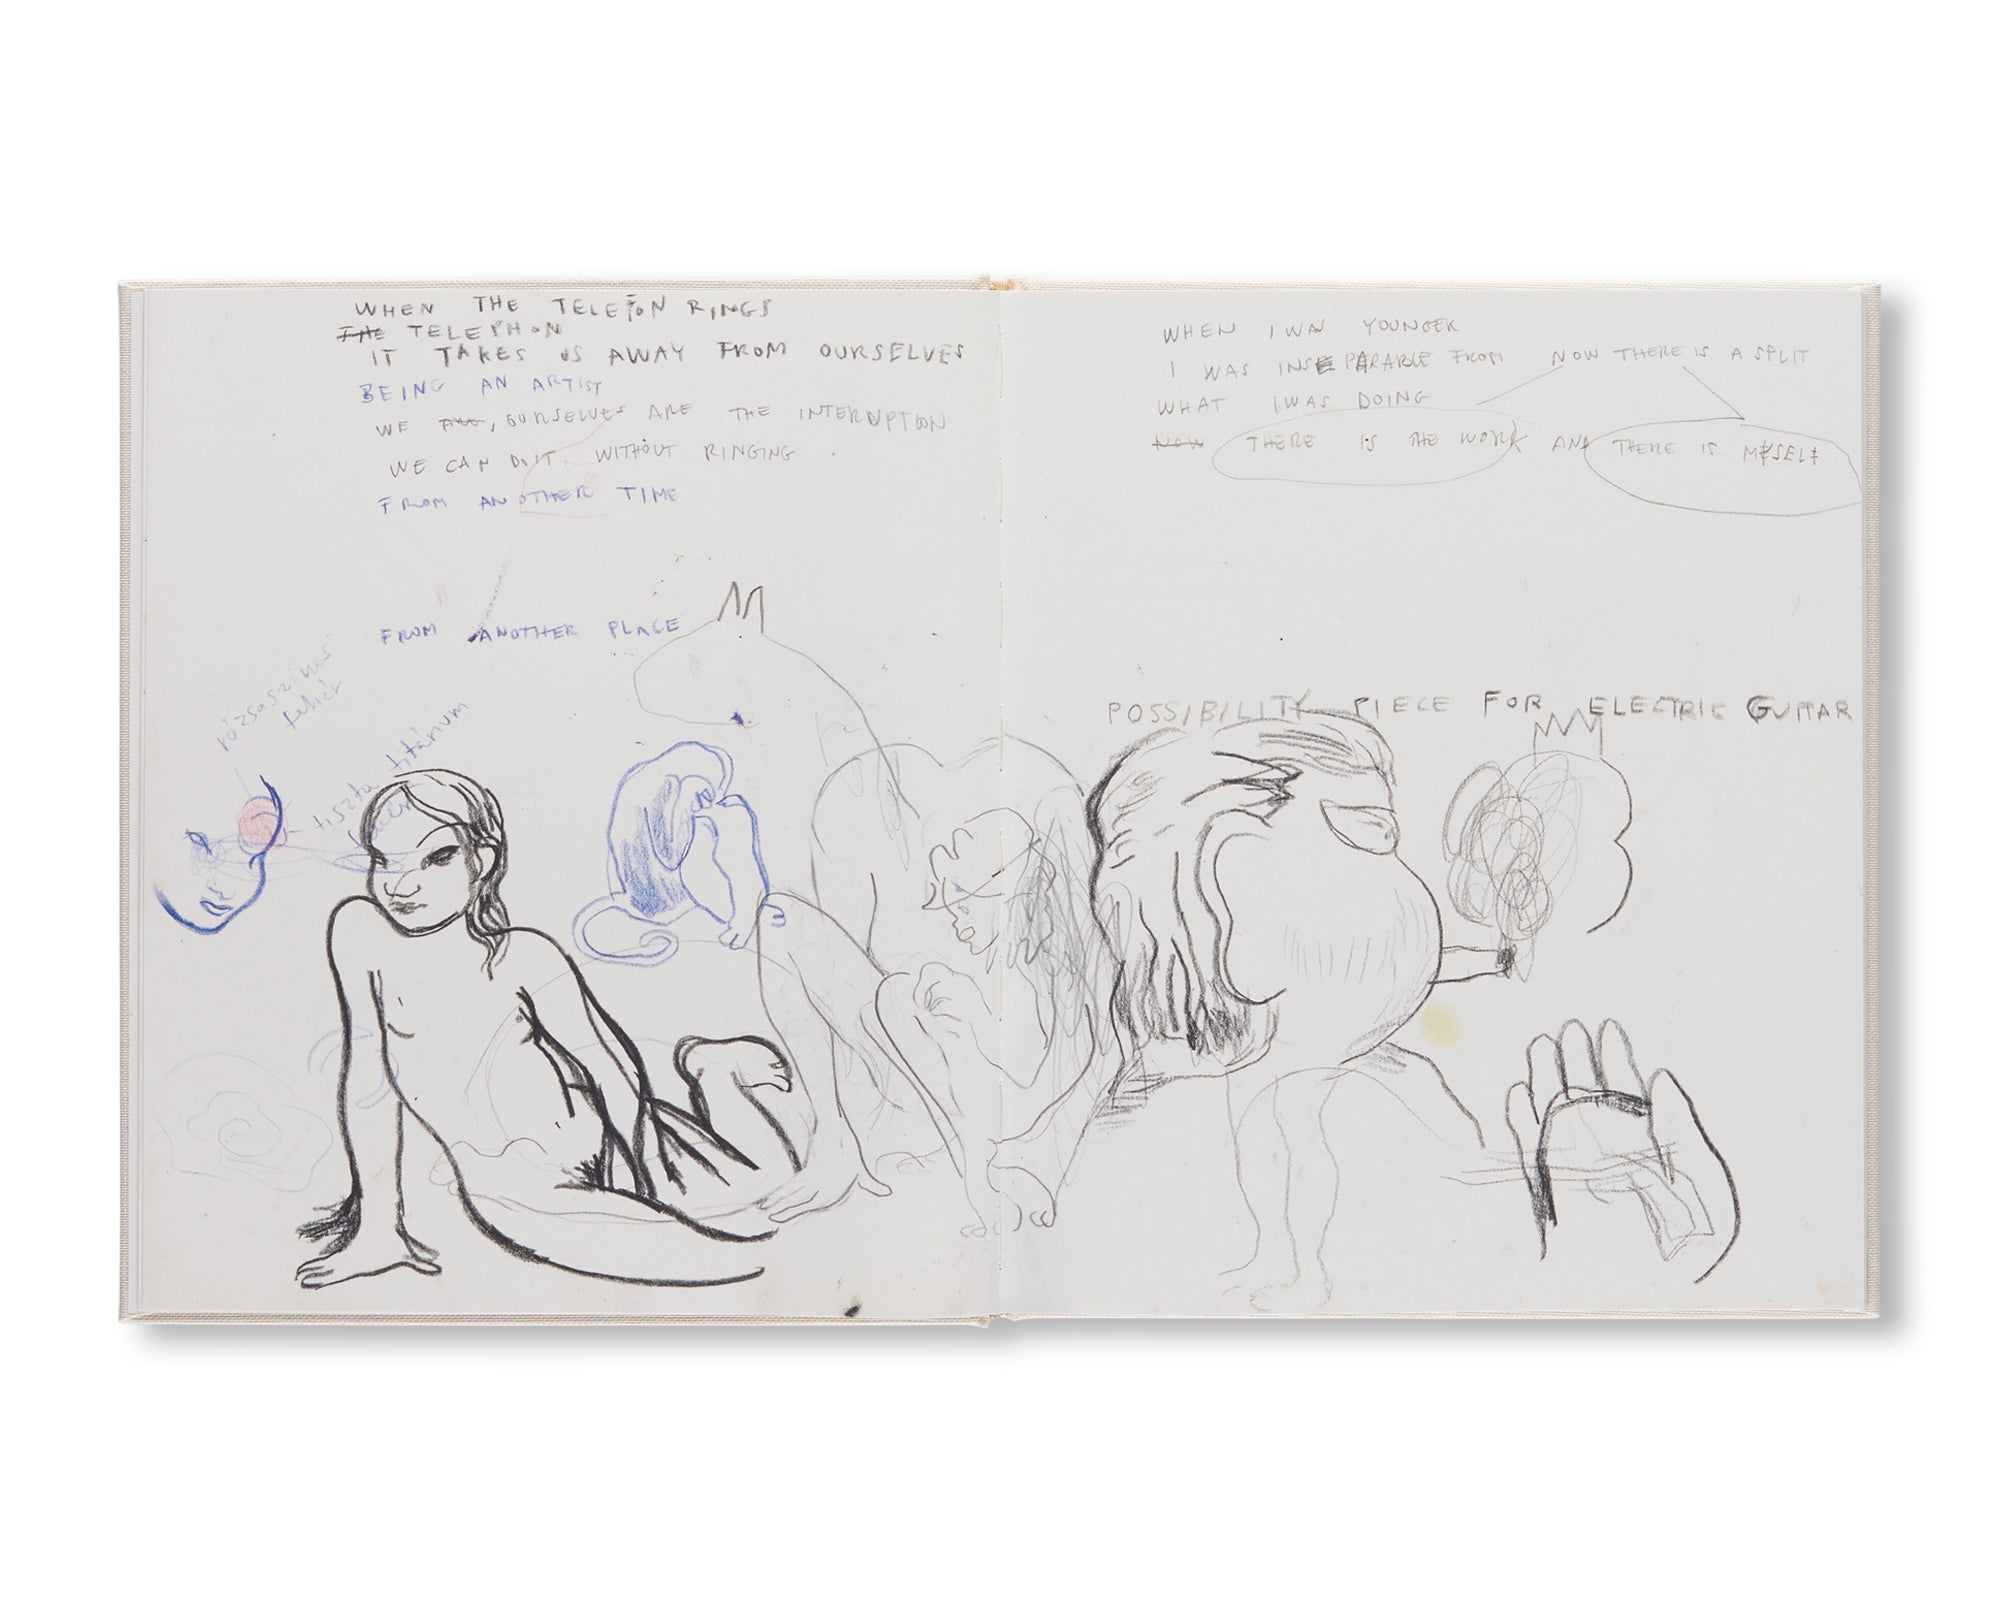 WHEN THE TELEFON RINGS
THE TELEPHON
IT TAKES US AWAY FROM OURSELVES
BEING AN ARTIST
WE ARE, OURSELVES ARE THE INTERUPTION
WE CAN DO IT WITHOUT RINGING
FROM ANOTHER TIME
FROM ANOTHER PLACE
rózsaszínes
fehér
tiszta titánium
WHEN I WAS YOUNGER
I WAS INSEPARABLE FROM
WHAT I WAS DOING
NOW THERE IS A SPLIT
NOW THERE IS THE WORK AND THERE IS MYSELF
POSSIBILITY PIECE FOR ELECTRIC GUITAR